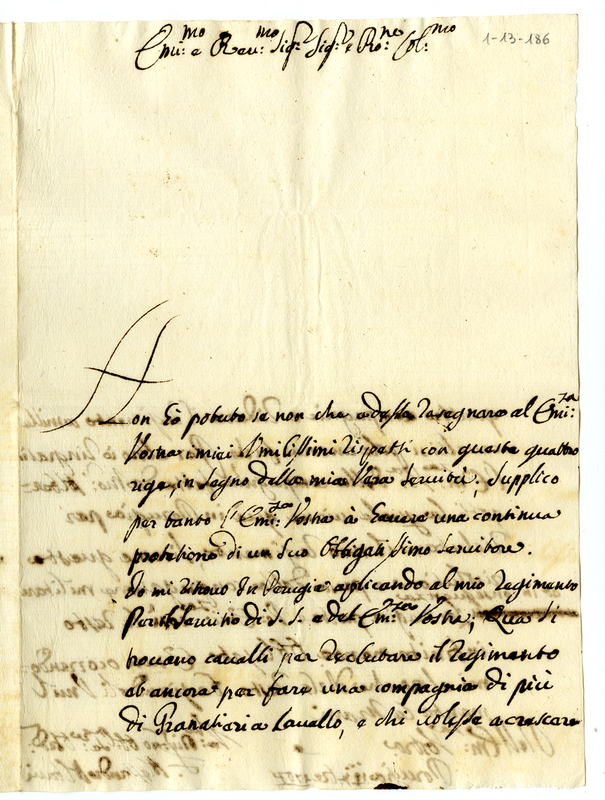 1-13-186
Emi:mo e Reu:mo Sigr: Sigr: e Pro:ne Col:mo
Non ho potuto se non che adesso rasegnare al Emi:za
Vostra i miei Umilissimi rispetti con queste quattro
rige, in segno della mia Vera Servitù; Supplico
per tanto l'Emi:za Vostra à hauere una continua
protetione di un Suo Obbligatissimo Servitore.
Io mi ritrouo In Perugia applicando al mio Regimento
Per il Seruitio di S. S. e del Emi:za Vostra; Qua Si
trouano caualli per reclutare il regimento
ed ancora per fare una compagnia di più
di Granatiari a Cauallo, e chi uolesse acrescere